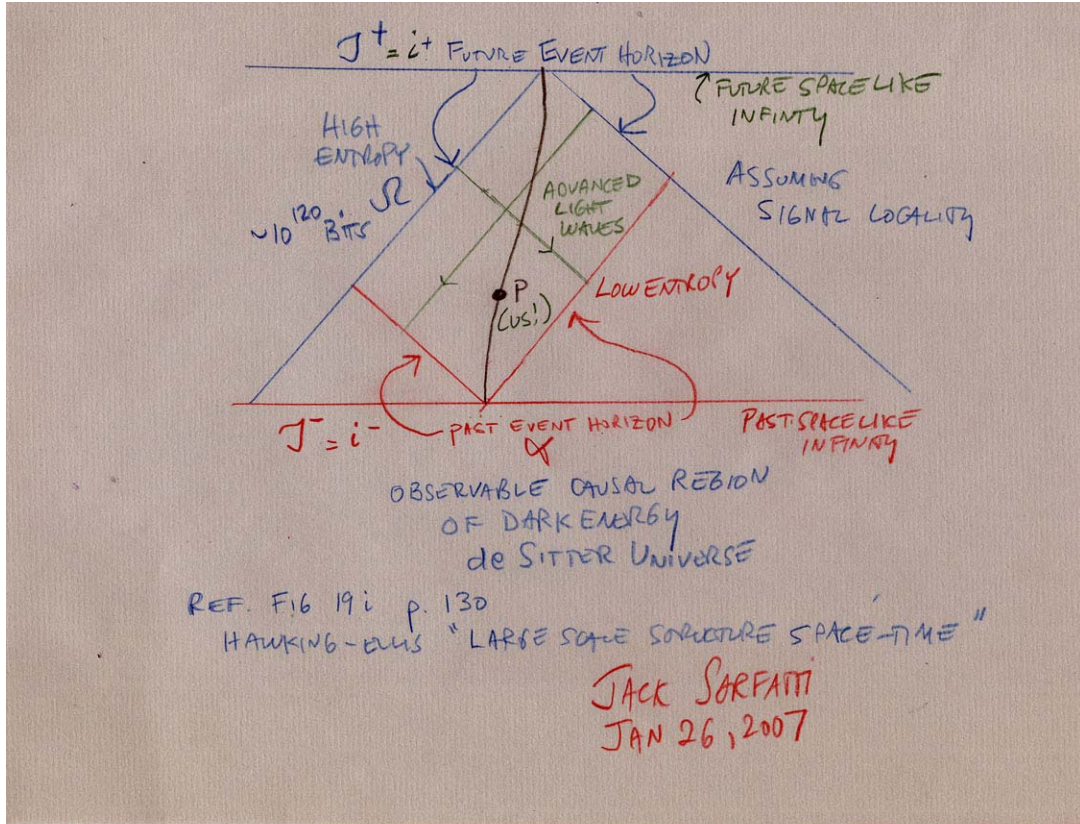 J⁺ = i⁺ FUTURE EVENT HORIZON
FUTURE SPACELIKE
INFINTY
HIGH
ENTROPY
Ω
~10¹²⁰ BITS
ADVANCED
LIGHT
WAVES
ASSUMING
SIGNAL LOCALITY
P
(US!)
LOW ENTROPY
J⁻ = i⁻
PAST EVENT HORIZON
α
PAST SPACELIKE
INFINITY
OBSERVABLE CAUSAL REGION
OF DARK ENERGY
de SITTER UNIVERSE
REF. FIG 19 i p. 130
HAWKING-ELLIS "LARGE SCALE STRUCTURE SPACE-TIME"
JACK SARFATTI
JAN 26, 2007